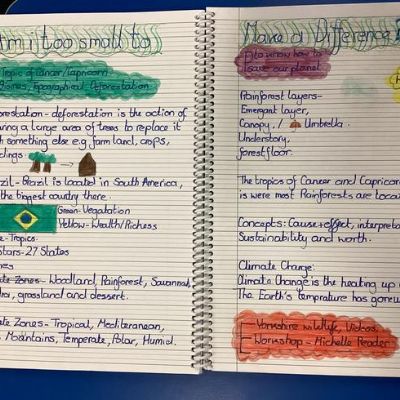 Am i too small to
Make a Difference?
Tropic of cancer/capricorn
Biomes, Topographical, Deforestation
orestation - deforestation is the action of
ring a large area of trees to replace it
h something else e.g farm land, crops,
dings.
zil - Brazil is located in South America,
the biggest country there.
Green - Vegatation
Yellow - Wealth/Riches
e - Tropics.
Stars - 27 States
mes
ate Zones - Woodland, Rainforest, Savannah,
grassland and dessert.
ate Zones - Tropical, Mediteranean,
Mountains, Temperate, Polar, Humid.
to know how to
save our planet
Rainforest layers -
Emergant layer,
Canopy, / Umbrella.
Understory,
forest floor.
The tropics of Cancer and Capricor
is were most Rainforests are loca
Concepts: Cause + effect, interpreta
Sustainability and worth.
Climate Change:
Climate Change is the heating up o
The Earth's temprature has gone u
Yorkshire wildlife, Videos,
Workshop - Michelle Reader